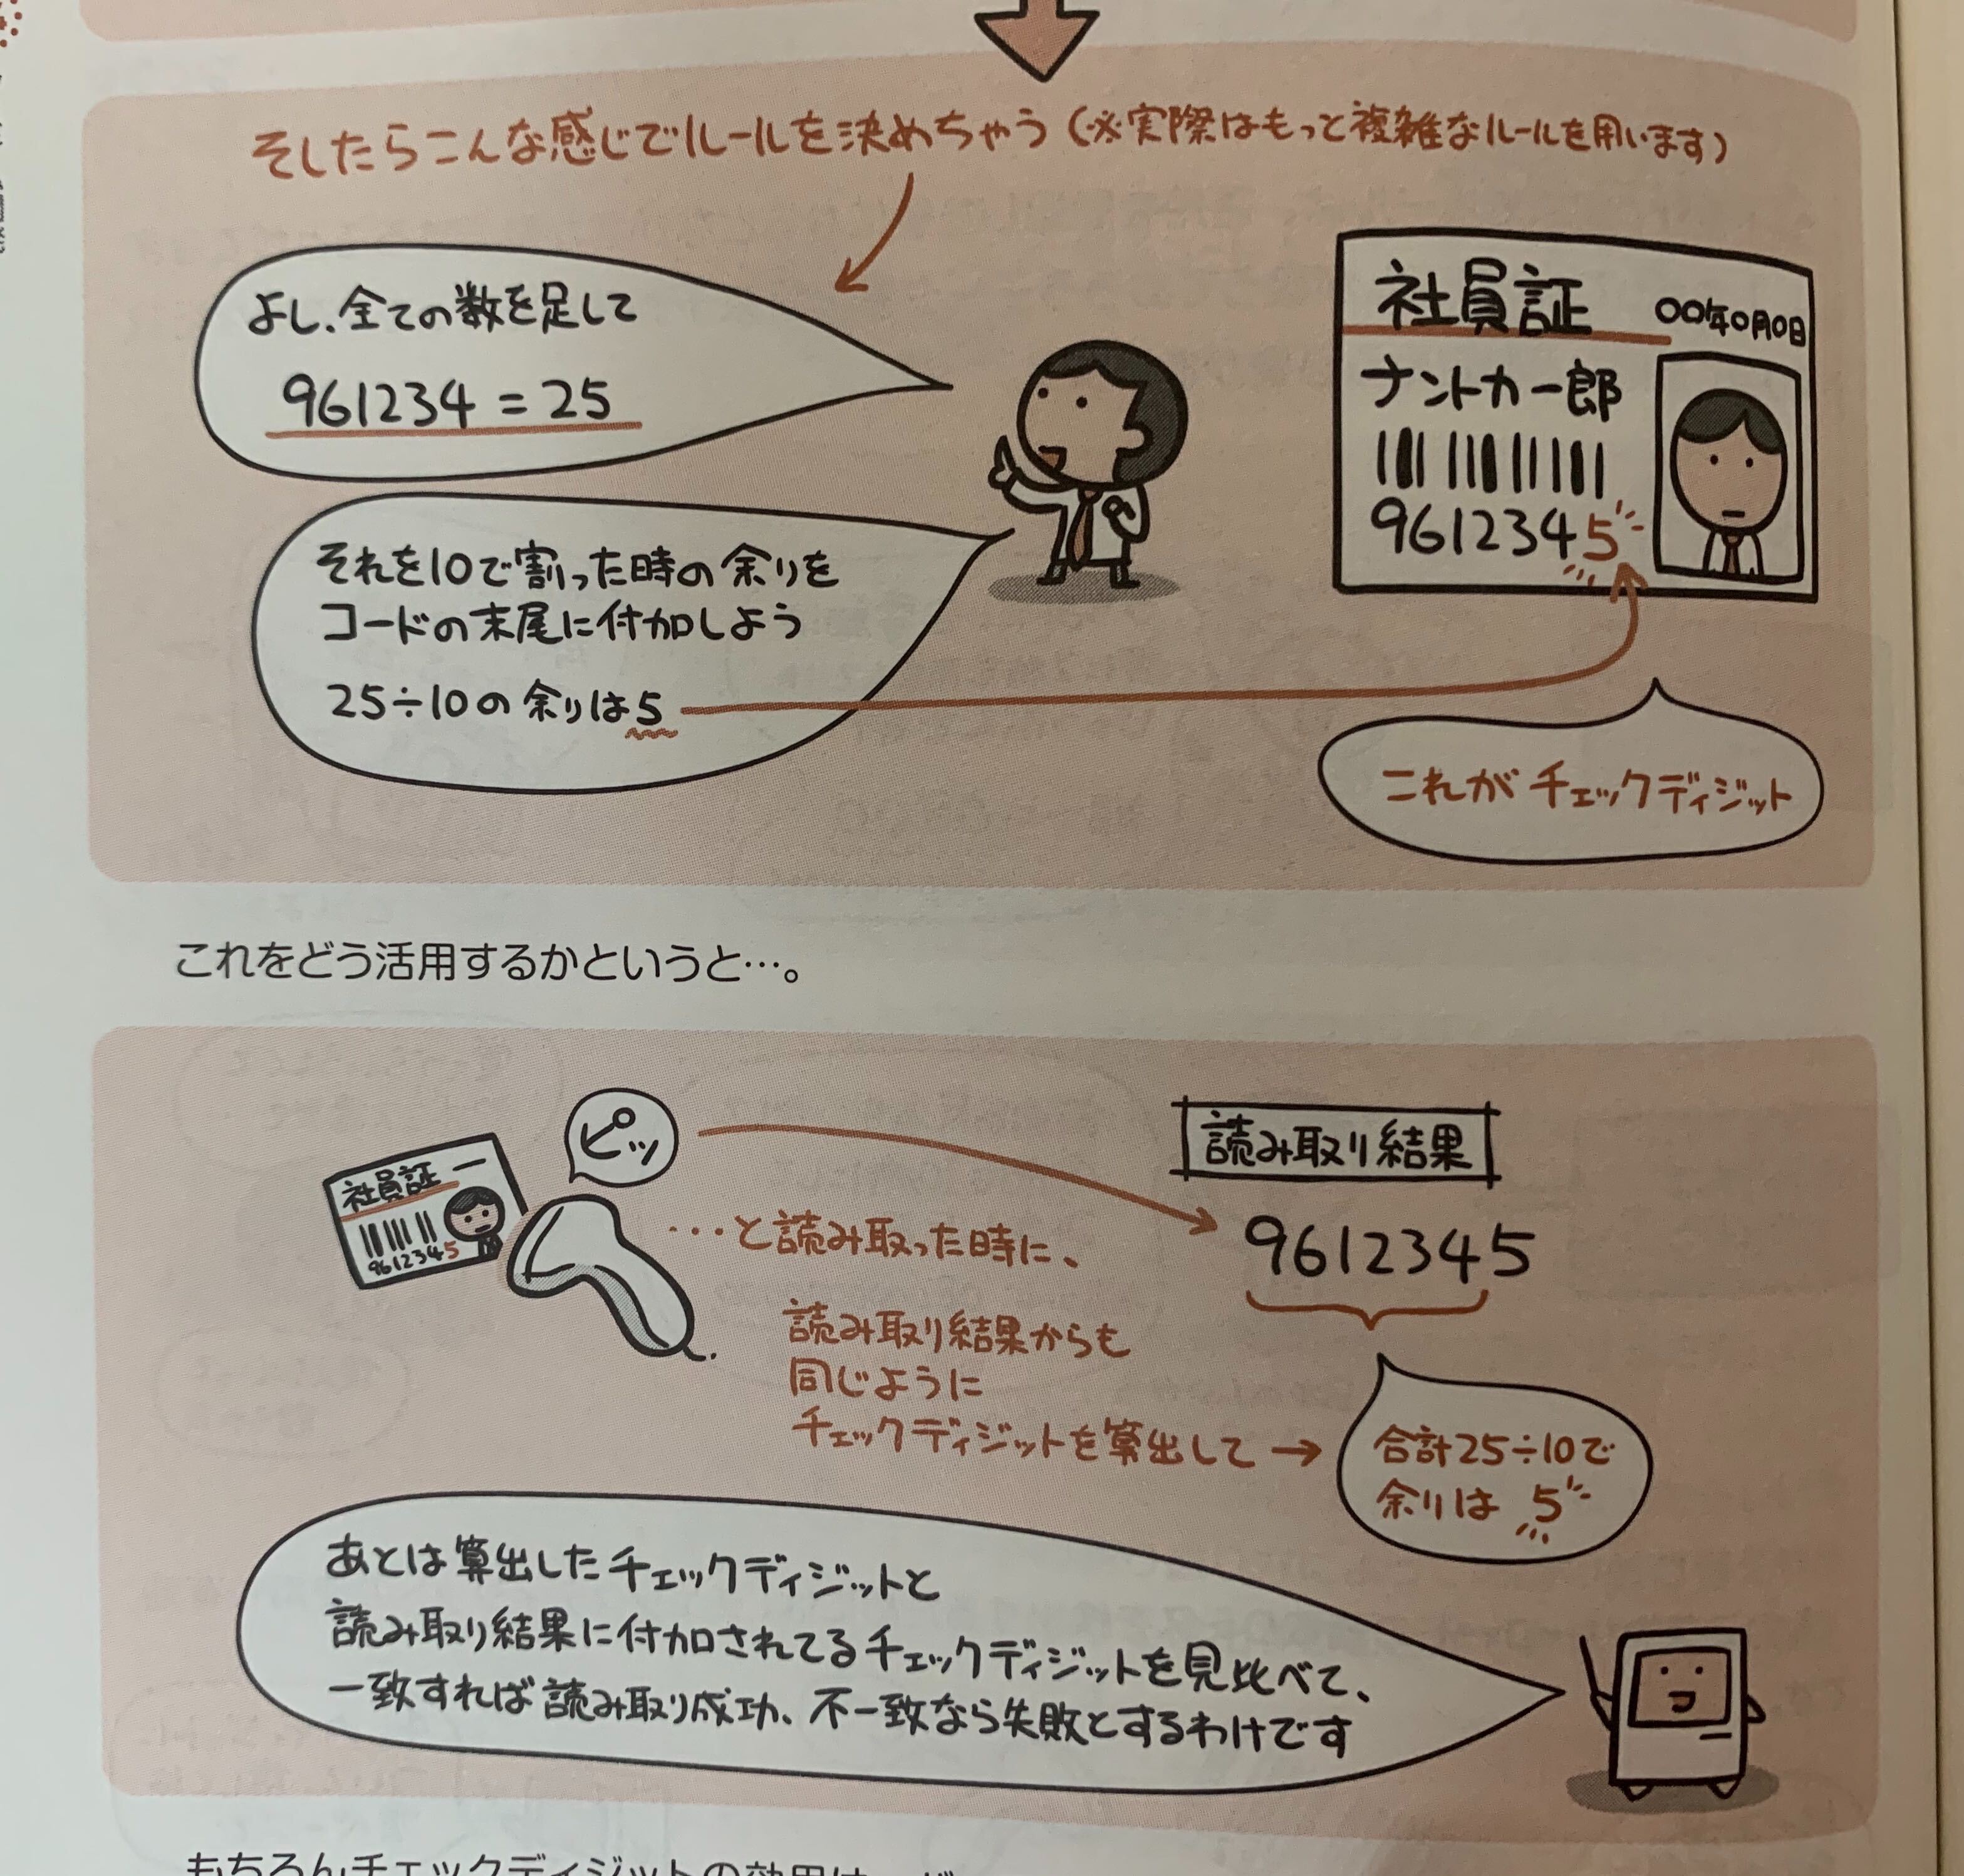 そしたらこんな感じでルールを決めちゃう（※実際はもっと複雑なルールを用います）
よし、全ての数を足して
961234 = 25
それを10で割った時の余りを
コードの末尾に付加しよう
25÷10の余りは5
社員証
〇〇年〇月〇日
ナントカ一郎
9612345
これがチェックディジット
これをどう活用するかというと…。
社員証
9612345
ピッ
…と読み取った時に、
読み取り結果
9612345
読み取り結果からも
同じように
チェックディジットを算出して→
合計25÷10で
余りは 5
あとは算出したチェックディジットと
読み取り結果に付加されてるチェックディジットを見比べて、
一致すれば読み取り成功、不一致なら失敗とするわけです
もちろんチェックディジットの効用は